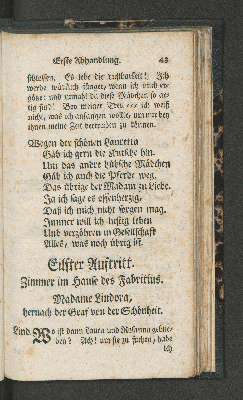 Erste Abhandlung. 43
schlossen. Es lebe die Lustbarkeit! Ich
werde würklich jünger, wenn ich mich er-
götze: und zumahl da diese Mädchen so ar-
tig sind! Bey meiner Treu ich weiß
nicht, was ich anfangen wollte, um nur bey
ihnen meine Zeit vertreiben zu können.
Wegen der schönen Lauretta
Gäb ich gern die Kutsche hin.
Um das andre hübsche Mädchen
Gäb ich auch die Pferde weg,
Das übrige der Madam zu Liebe.
Ja ich sage es offenherzig,
Daß ich mich nicht sorgen mag.
Immer will ich lustig leben
Und verzöhren in Gesellschaft
Alles, was noch übrig ist.
Eilfter Auftritt.
Zimmer im Hause des Fabritius.
Madame Lindora,
hernach der Graf von der Schönheit.
Lind. Wo ist dann Laura und Rosanna geblie-
ben? Ach! um sie zu suchen, habe
ich